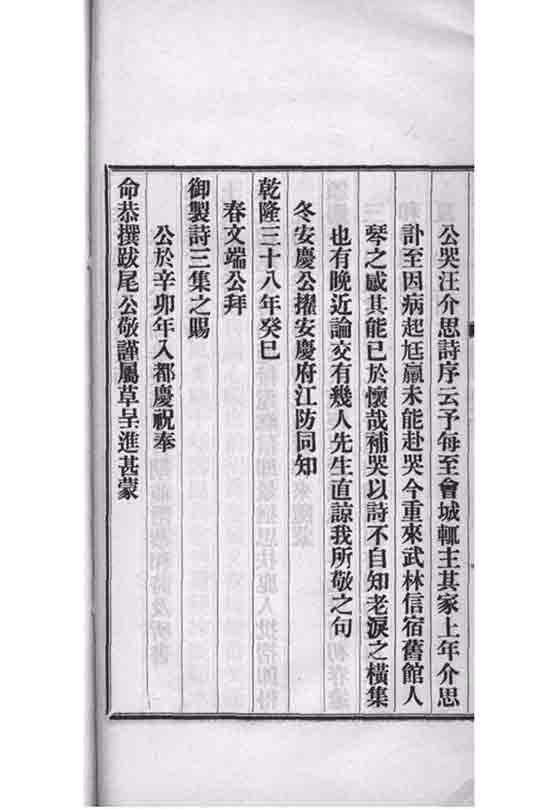 公哭汪介思詩序云予每至會城輒主其家上年介思
訃至因病起尫羸未能赴哭今重來武林信宿舊館人
琴之慼其能已於懷哉補哭以詩不自知老淚之橫集
也有晚近論交有幾人先生直諒我所敬之句
冬安慶公擢安慶府江防同知
乾隆三十八年癸巳
春文端公拜
御製詩三集之賜
公於辛卯年入都慶祝奉
命恭撰跋尾公敬謹屬草呈進甚蒙